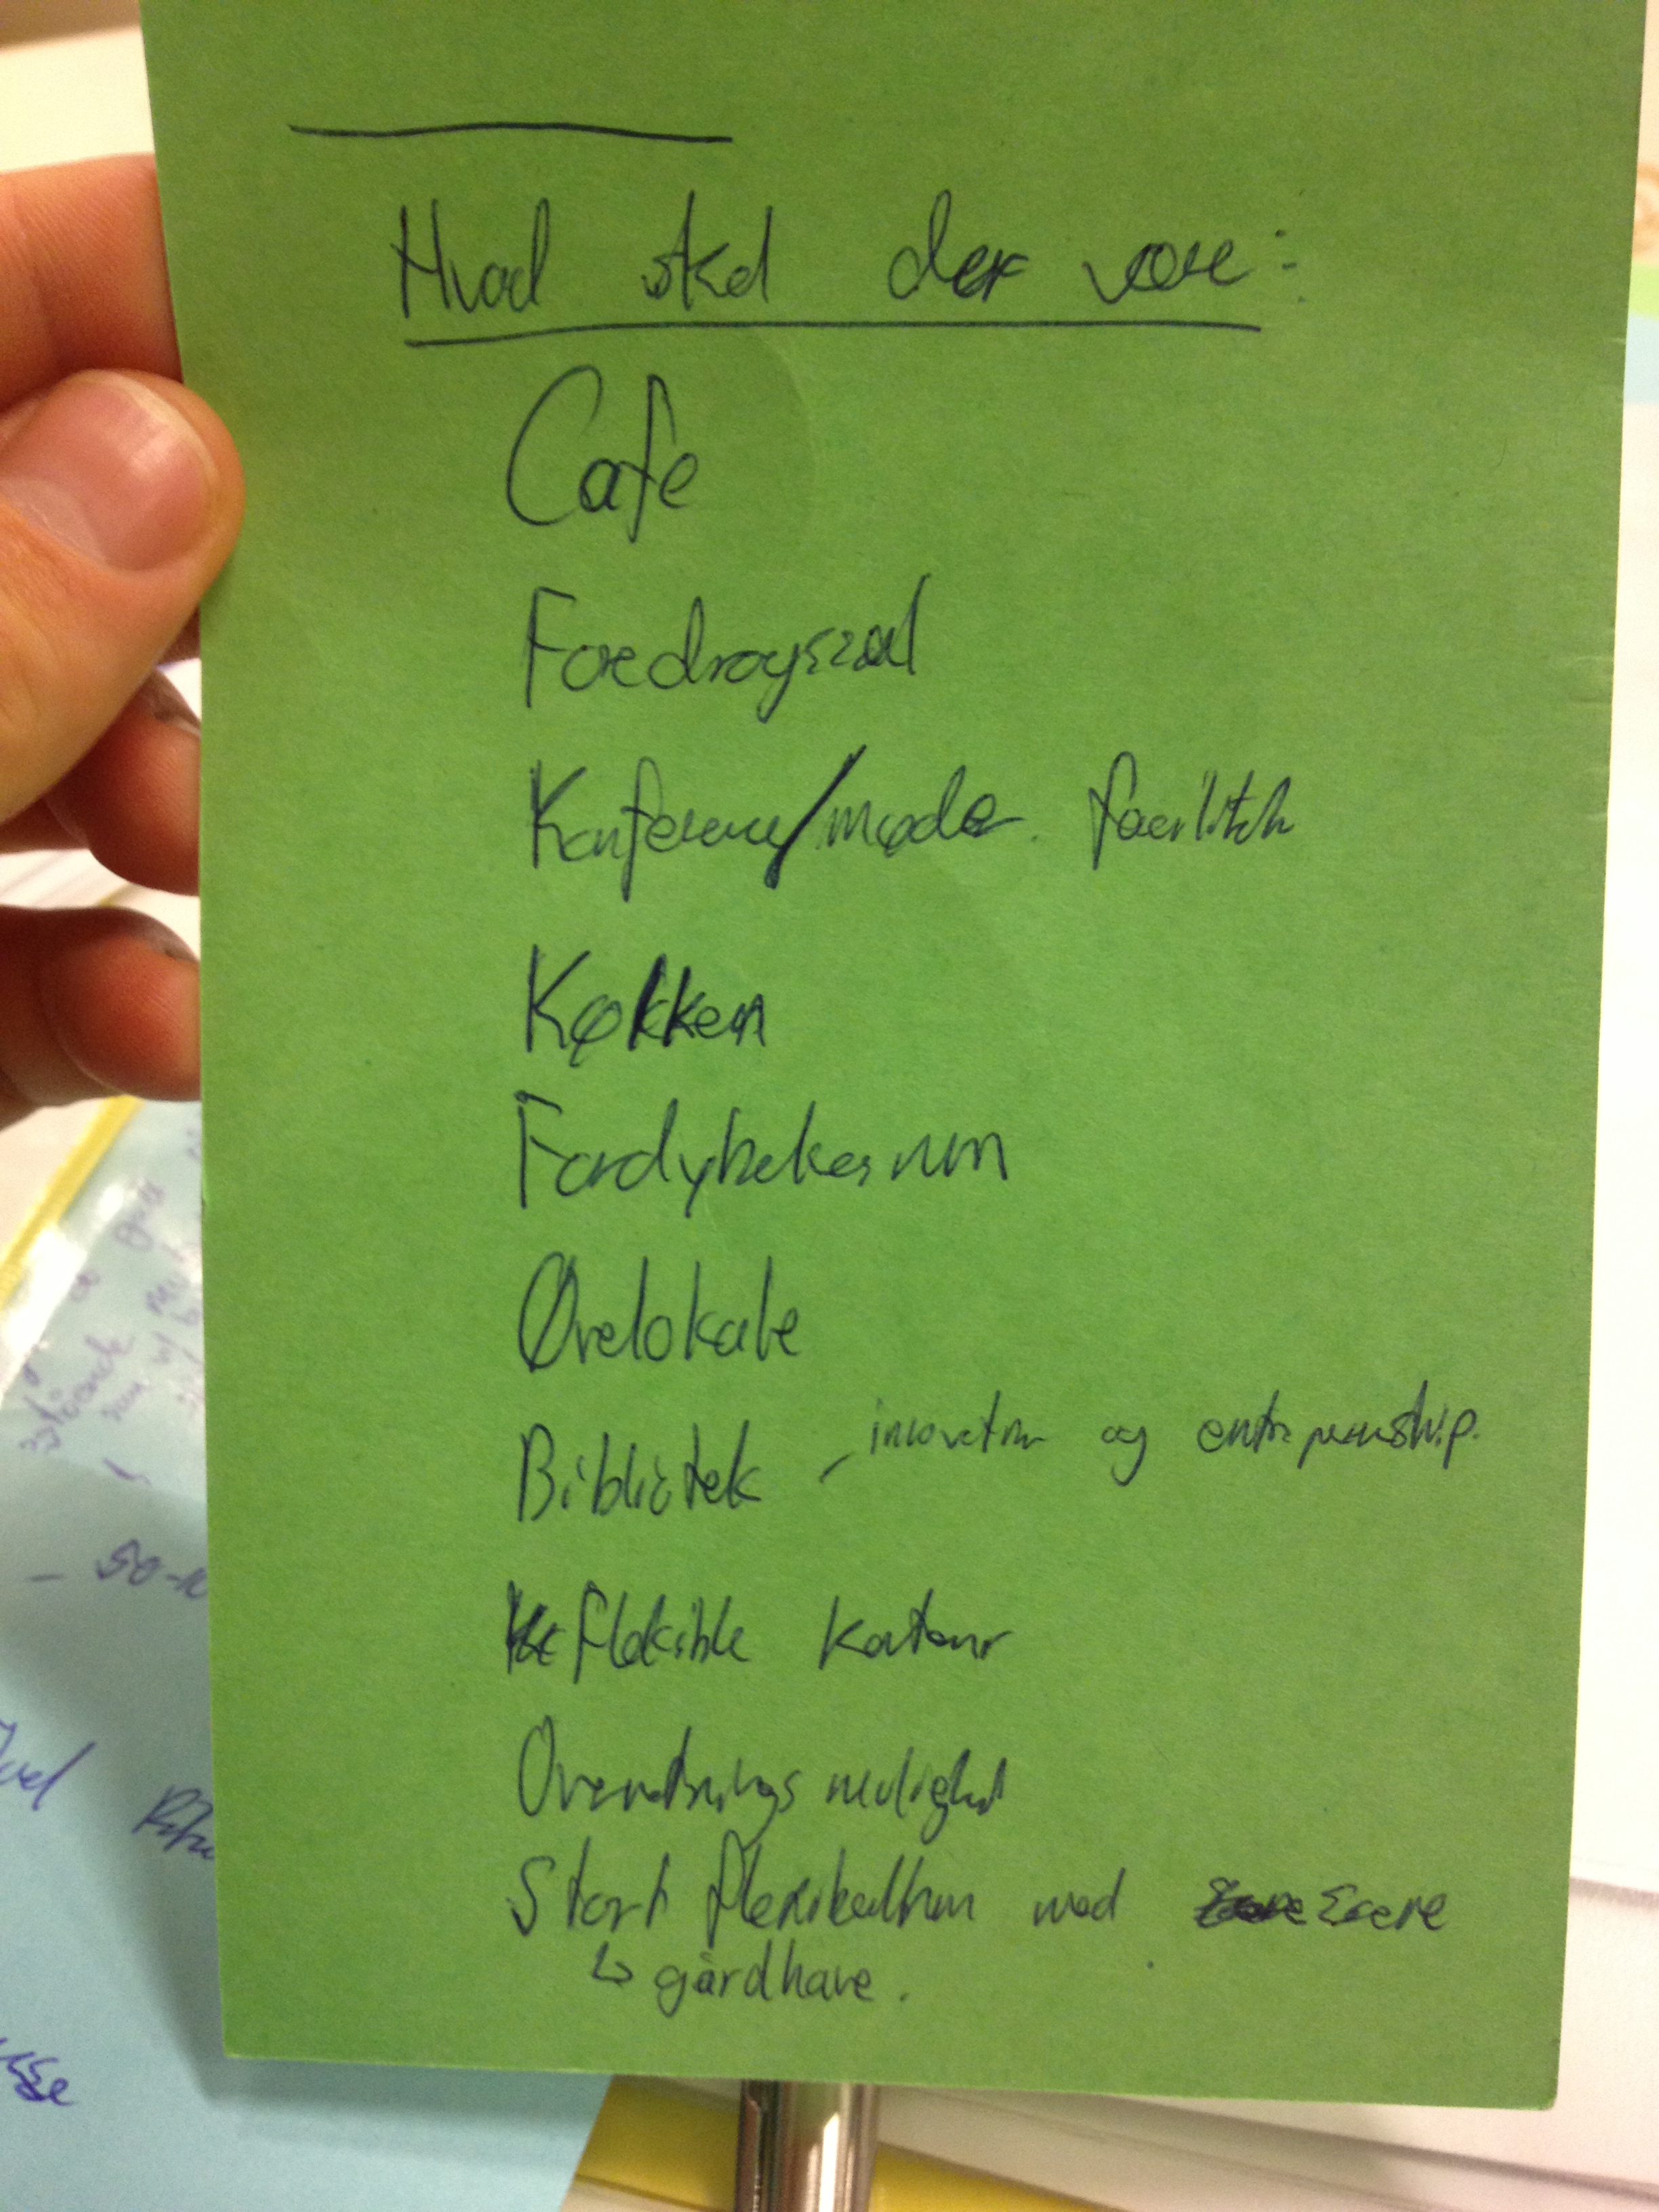 Hvad skal der være:
Cafe
Foredragssal
Konference/møde faciliteter
Køkken
Fordybelsesrum
Øvelokale
Bibliotek - innovation og entrepenurship.
fleksible kontorer
Overnatnings mulighed
Stort flexibelt rum med Scene
↳ gårdhave.
50-10